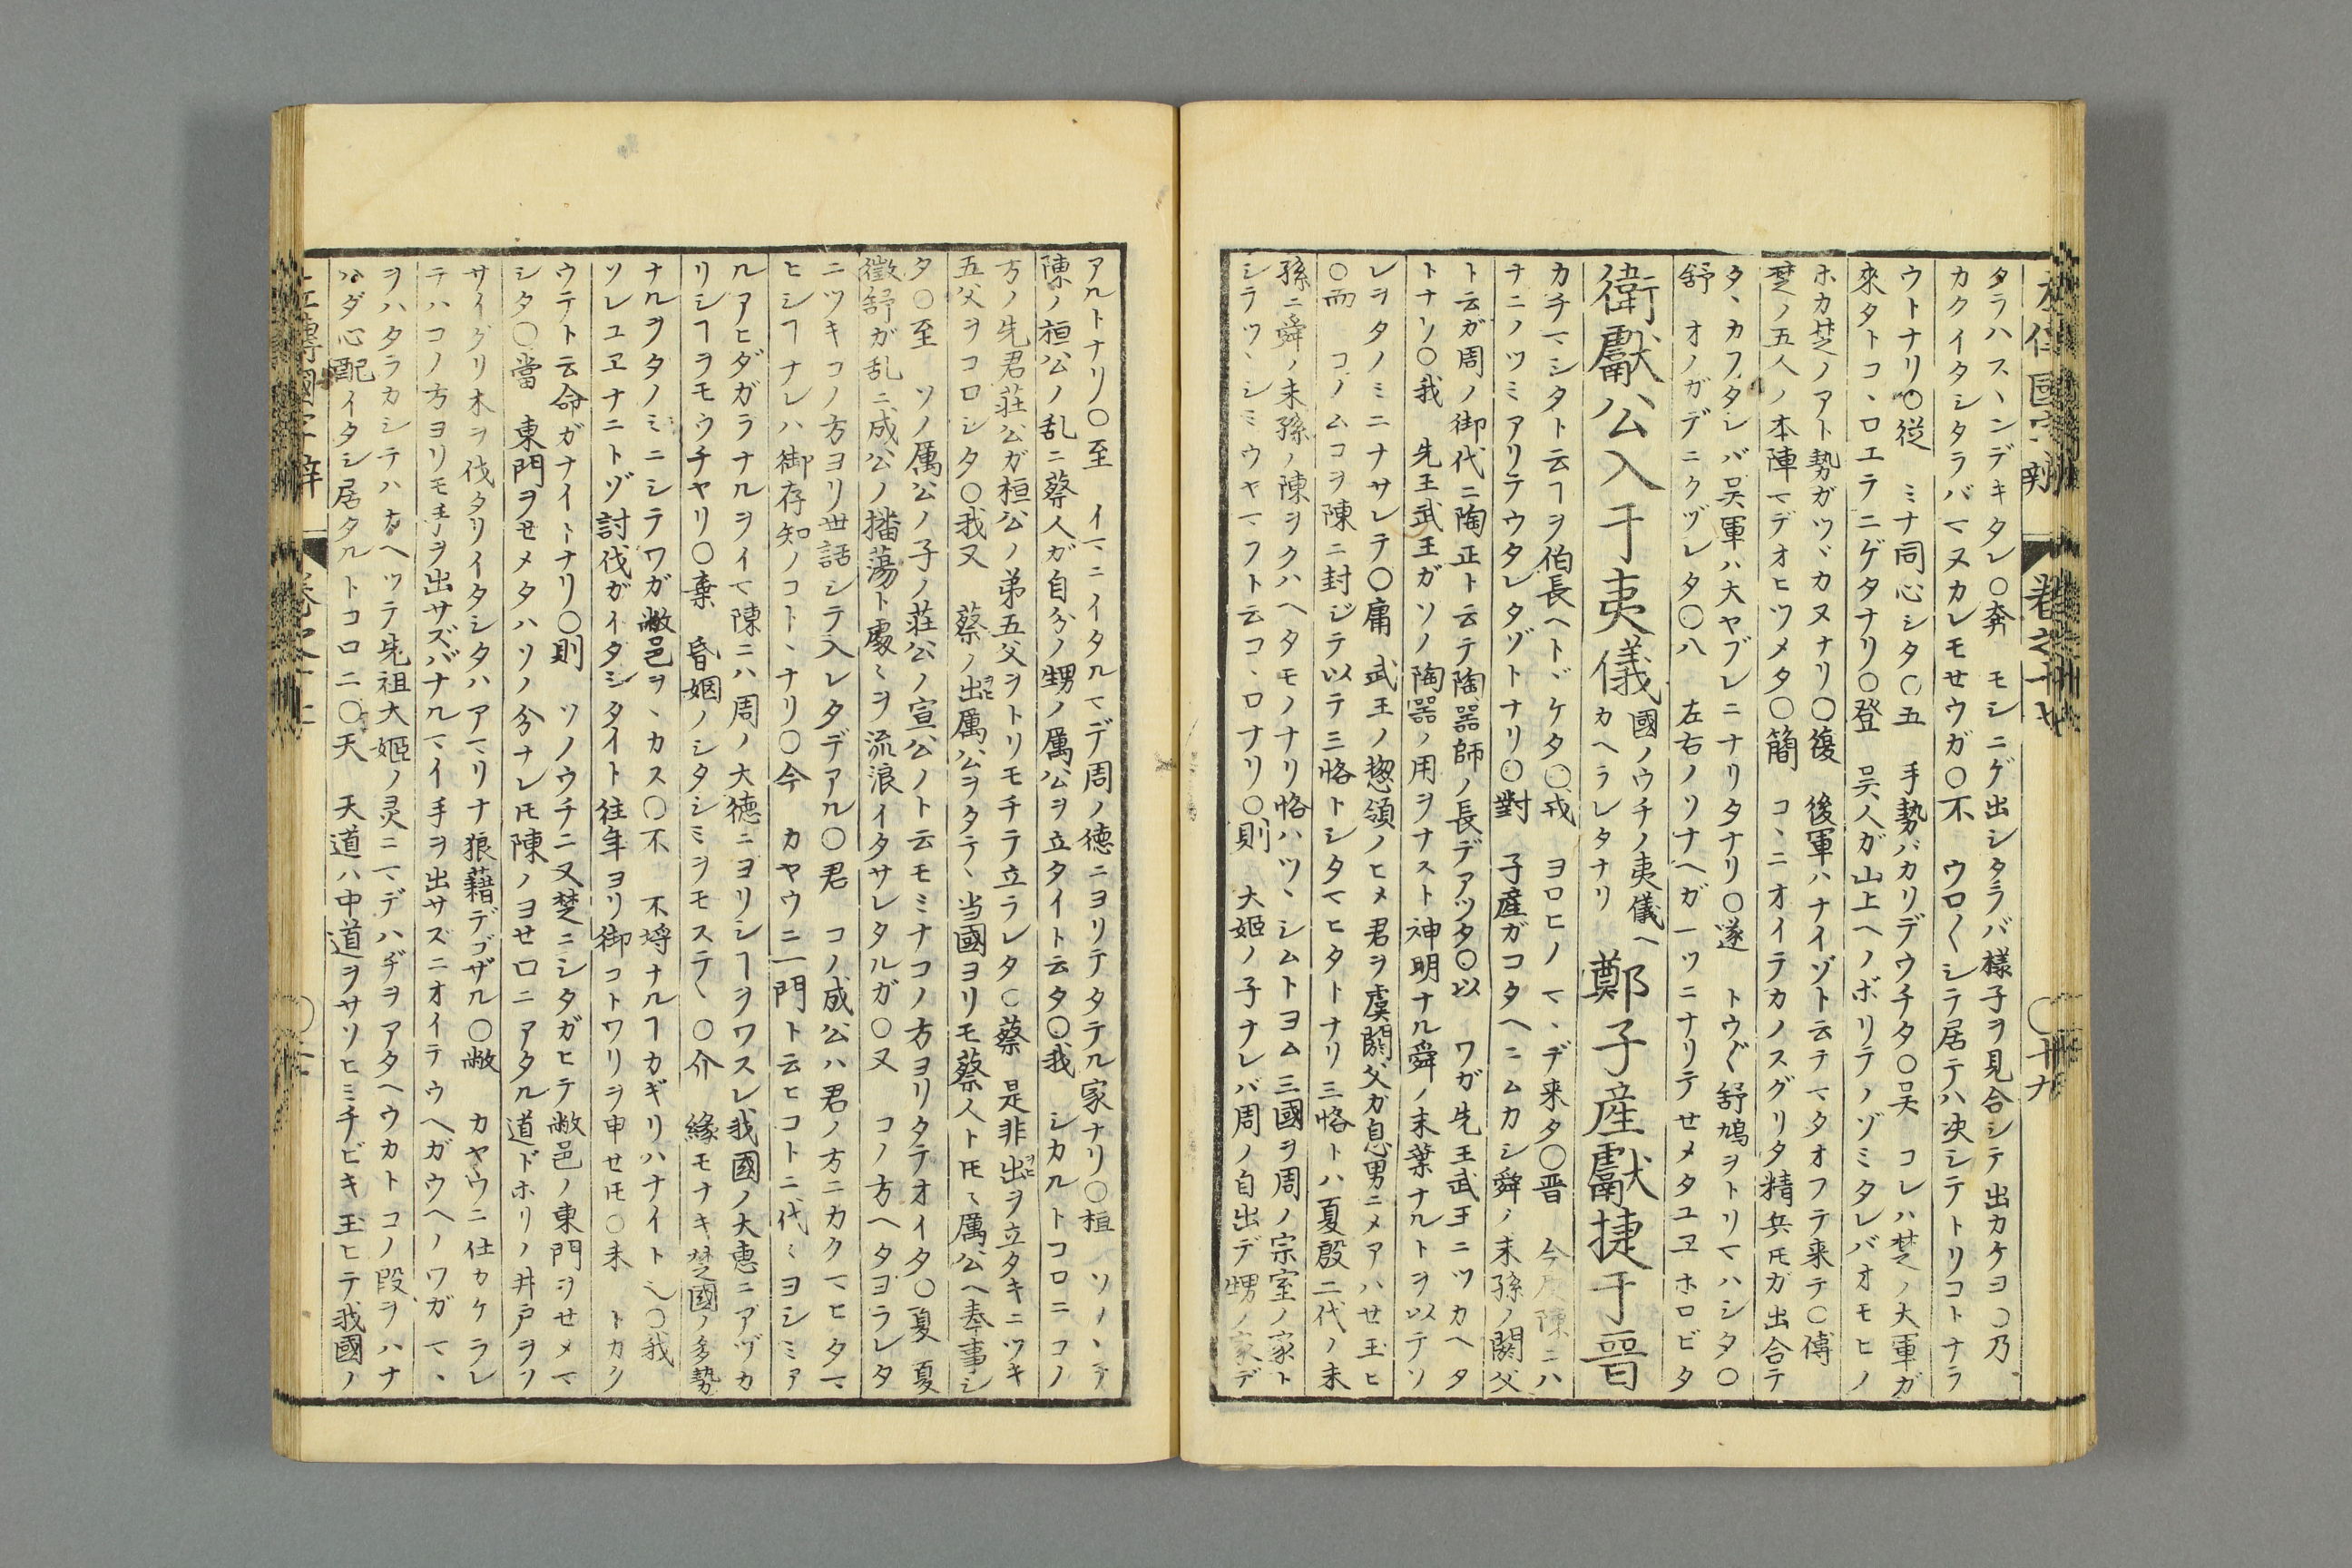 タラハスヽンデキタレ〇奔　モシニゲ出シタラバ様子ヲ見合シテ出カケヨ〇乃
カクイタシタラバマヌカレモせウガ〇不　ウロ〱シテ居テハ决シテトリコトナラ
ウトナリ〇従　ミナ同心シタ〇五　手勢バカリデウチタ〇吴　コレハ楚ノ大軍ガ
來タトコヽロエラニゲタナリ〇登　吴人ガ山上ヘノボリテノゾミタレバオモヒノ
ホカ楚ノアト勢ガツヾカヌナリ〇復　後軍ハナイゾト云テマタオフテ来テ〇傅
楚ノ五人ノ本陣マデオヒツメタ〇簡　コヽニオイテカノスグリタ精兵𪜈ガ出合テ
タヽカフタレバ吴軍ハ大ヤブレニナリタナリ〇遂　トウ〲舒鳩ヲトリマハシタ〇
舒　オノガデニクヅレタ〇八　左右ノソナヘガ一ツニナリテせメタユヱホロビタ
衛獻公入于夷儀國ノウチノ夷儀ヘカヘラレタナリ　鄭子産獻捷于晉
カチマシタト云ヿヲ伯長ヘトヾケタ〇戎　ヨロヒノマヽデ来タ〇晋　今度陳ニハ
ナニノツミアリテウタレタゾトナリ〇對　子産ガコタヘニムカシ舜ノ末孫ノ閼父
ト云ガ周ノ御代ニ陶正ト云テ陶器師ノ長デアツタ〇以　ワガ先王武王ニツカヘタ
トナリ〇我　先王武王ガソノ陶器ノ用ヲナスト神明ナル舜ノ末葉ナルトヲ以テソ
レヲタノミニナサレテ〇庸　武王ノ惣領ノヒメ君ヲ虞閼父ガ息男ニメアハせ玉ヒ
〇而　コノムコヲ陳ニ封ジテ以テ三恪トシタマヒタトナリ三恪トハ夏殷二代ノ末
孫ニ舜ノ末孫ノ陳ヲクハヘタモノナリ恪ハツヽシムトヨム三國ヲ周ノ宗室ノ家ト
シラツヽシミウヤマフト云コヽロナリ〇則　大姬ノ子ナレバ周ノ自出デ甥ノ家デ
アルトナリ〇至　イマニイタルマデ周ノ徳ニヨリテタテル家ナリ〇桓　ソノヽチ
陳ノ桓公ノ乱ニ蔡人ガ自分ノ甥ノ厲公ヲ立タイト云タ〇我　シカルトコロニコノ
方ノ先君莊公ガ桓公ノ弟五父ヲトリモチテ立ラレタ〇蔡　是非出ヲ立タキニツキ
五父ヲコロシタ〇我又　蔡ノ出厲公ヲタテヽ当國ヨリモ蔡人ト𪜈ヽ厲公ヘ奉事シ
タ〇至　ソノ厲公ノ子ノ莊公ノ宣公ノト云モミナコノ方ヨリタテオイタ〇夏　夏
徴舒ガ乱ニ成公ノ播蕩ト處〻ヲ流浪イタサレタルガ〇又　コノ方ヘタヨラレタ
ニツキコノ方ヨリ世話シテ入レタデアル〇君　コノ成公ハ君ノ方ニカクマヒタマ
ヒシヿナレハ御存知ノコトヽナリ〇今　カヤウニ一門ト云ヒコトニ代〻ヨシミア
ルアヒダガラナルヲイマ陳ニハ周ノ大徳ニヨリシヿヲワスレ我國ノ大惠ニアヅカ
リシヿヲモウチヤリ〇棄　昏姻ノシタシミヲモステヽ〇介　緣モナキ楚國ノ多勢
ナルヲタノミニシテワガ敝邑ヲヽカス〇不　不埒ナルヿカギリハナイト也〇我
ソレユヱナニトゾ討伐ガイタシタイト往年ヨリ御コトワリヲ申せ𪜈〇未　トカク
ウテト云命ガナイトナリ〇則　ソノウチニ又楚ニシタガヒテ敝邑ノ東門ヲせメマ
シタ〇當　東門ヲせメタハソノ分ナレ𪜈陳ノヨせ口ニアタル道ドホリノ井戸ヲソ
サイグリ木ヲ伐タリイタシタハアマリナ狼藉デゴザル〇敝　カヤウニ仕カケラレ
テハコノ方ヨリモ手ヲ出サズバナルマイ手ヲ出サズニオイテウヘガウヘノワガマヽ
ヲハタラカシテハナヘツテ先祖大姬ノ灵ニマデハヂヲアタヘウカトコノ段ヲハナ
ハダ心配イタシ居タルトコロニ〇天　天道ハ中道ヲサソヒミチビキ玉ヒテ我國ノ